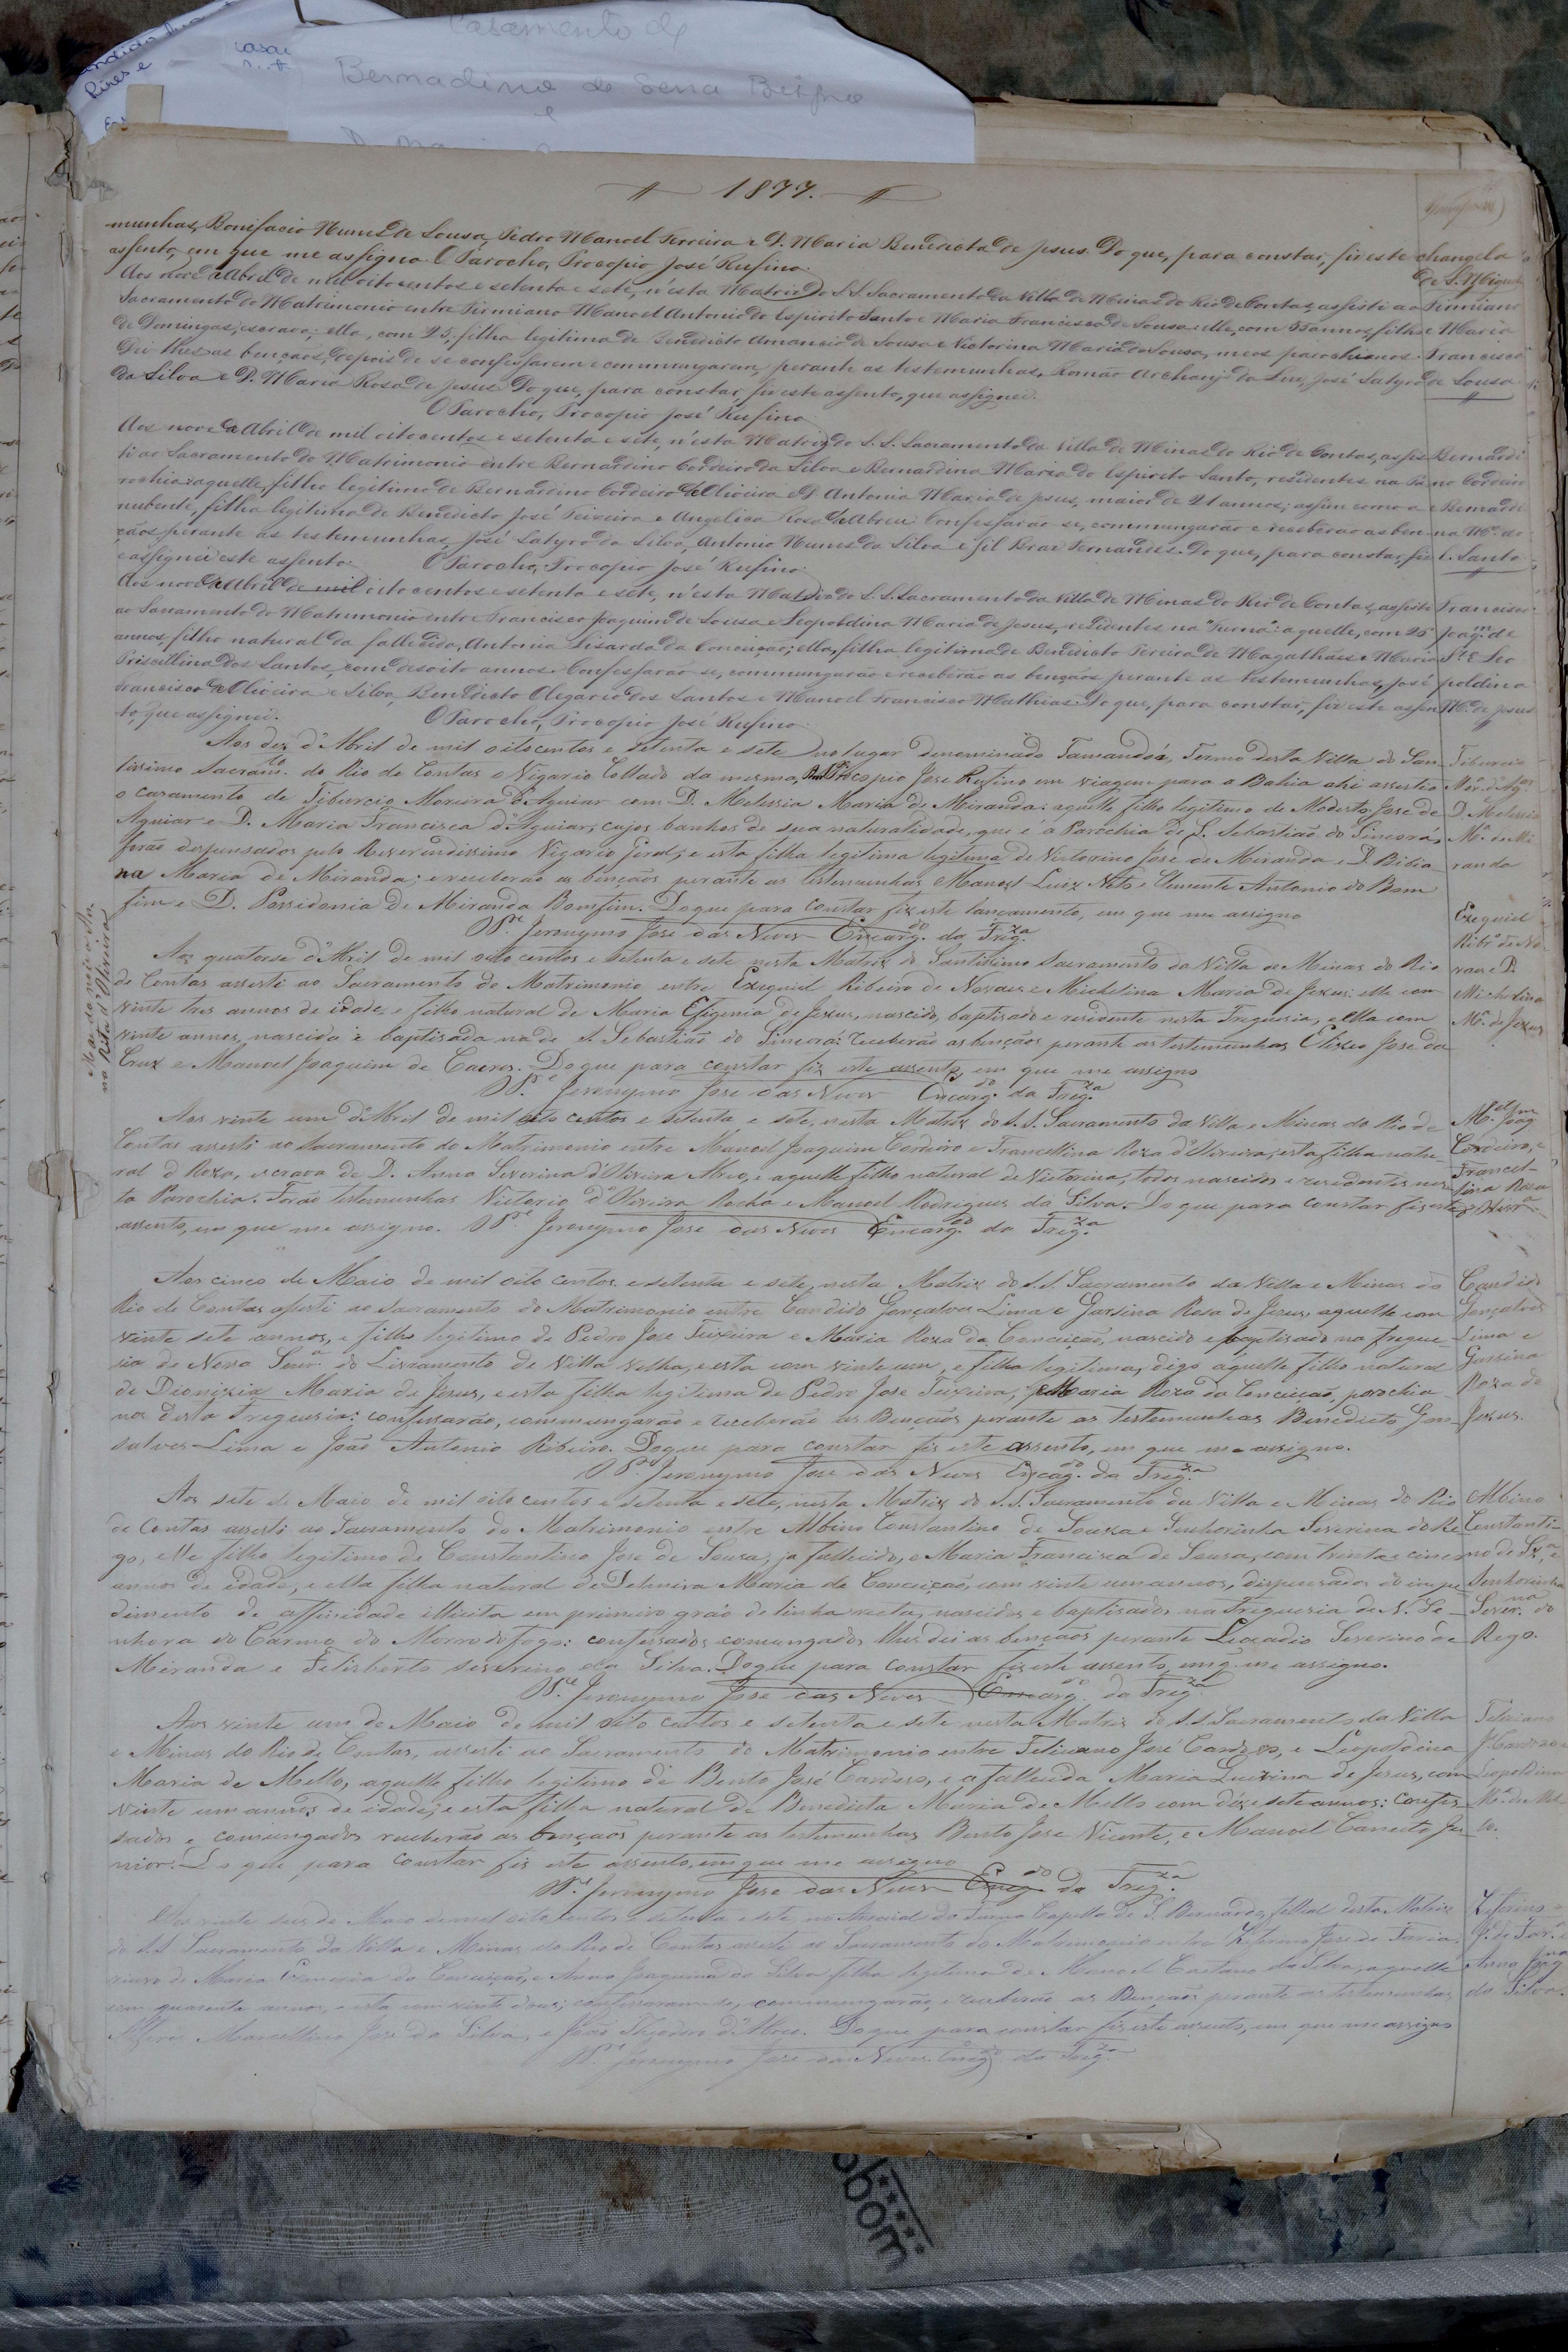 Casamento de
Bernadino de Sena
e
1877.
munhas, Bonifacio Nunes de Sousa, Pedro Manoel Ferreira e D. Maria Benedicta de Jesus. Do que, para constar, fiz este
assento, em que me assigno. O Parocho, Procopio José Rufino.
Aos nove d'Abril de mil oitocentos e setenta e sete, n'esta Matriz do S.S. Sacramento da Villa de Minas do Rio de Contas, assisti ao
Sacramento do Matrimonio entre Firmiano Manoel Antonio do Espirito Santo e Maria Francisca de Sousa: elle, com annos, filho
de Domingas, escrava; ella, com 25, filha legitima de Benedicto Amancio de Sousa e Victorina Maria de Sousa, meos parochianos.
Dei-lhes as bençãos, depois de se confessarem e commungarem, perante as testemunhas, Romão Archanjo da Luz, José Satyro
da Silva e D. Maria Rosa de Jesus. Do que, para constar, fiz este assento, que assignei.
O Parocho, Procopio José Rufino.
Aos nove d'Abril de mil oitocentos e setenta e sete, n'esta Matriz do S.S. Sacramento da Villa de Minas do Rio de Contas, assis
ti ao Sacramento do Matrimonio entre Bernardino Cordeiro da Silva e Bernardina Maria do Espirito Santo, residentes na Pa
rochia: aquelle, filho legitimo de Bernardino Cordeiro d'Oliveira e D. Antonia Maria de Jesus, maior de 21 annos; assim como a
nubente, filha legitima de Benedicto José Teixeira e Angelica Rosa d'Abreu. Confessarão-se, commungarão e receberão as ben
çãos perante as testemunhas, José Satyro da Silva, Antonio Nunes da Silva e Gil Braz Fernandes. Do que, para constar, fiz
e assignei este assento. O Parocho, Procopio José Rufino.
Aos nove d'Abril de mil oitocentos e setenta e sete, n'esta Matriz do S.S. Sacramento da Villa de Minas do Rio de Contas, assisti
ao Sacramento do Matrimonio entre Francisco Joaquim de Sousa e Leopoldina Maria de Jesus, residentes na "Furna": aquelle, com 25
annos, filho natural da fallecida, Antonia Lisarda da Conceição; ella, filha legitima de Benedicto Pereira de Magalhães e Maria
Priscillina dos Santos, com desoito annos. Confessarão-se, commungarão e receberão as bençãos perante as testemunhas, José
Francisco d'Oliveira e Silva, Benedicto Olegario dos Santos e Manoel Francisco Mathias. Do que, para constar, fiz este assen
to, que assignei. O Parocho, Procopio José Rufino.
Aos dez d'Abril de mil oitocentos e setenta e sete no lugar denominado Tamanduá, Termo desta Villa do San-
tissimo Sacramto. do Rio de Contas o Vigario Collado da mesma, Procopio José Rufino em viagem para a Bahia ahi assestio
o casamento de Tiburcio Moreira d'Aguiar com D. Melissia Maria de Miranda: aquelle filho legitimo de Modesto José de
Aguiar e D. Maria Francisca d'Aguiar, cujos banhos de sua naturalidade, que é a Parochia de S. Sebastião do Sincorá,
forão dispensados pelo Reverendissimo Vigario Geral; e esta filha legitima legitima de Victorino José de Miranda e D. Bibia
na Maria de Miranda; e receberão as bençãos perante as testemunhas Manoel Luiz Neto e Clemente Antonio do Bom
fim e D. Possidonia de Miranda Bomfim. Do que para constar fiz este lançamento, em que me assigno
Pe. Jeronymo José das Neves Encarg.do da Freg.za
Aos quatorse d'Abril de mil oito centos e setenta e sete nesta Matriz do Santissimo Sacramento da Villa de Minas do Rio
de Contas assesti ao Sacramento do Matrimonio entre Ezequiel Ribeiro de Novaes e Michelina Maria de Jezus: elle com
vinte tres annos de idade e filho natural de Maria Efigenia de Jezus, nascido, baptisado e residente nesta Freguesia, e ella com
vinte annos, nascida e baptisada na de S. Sebastião do Sincorá: receberão as bençãos perante as testemunhas Eliseo José da
Cruz e Manoel Joaquim de Caeres. Do que para constar fiz este assento, em que me assigno
Pe. Jeronymo José das Neves Encarg.do da Freg.za
Aos vinte um d'Abril de mil oito centos e setenta e sete, nesta Matriz do S.S. Sacramento da Villa e Minas do Rio de
Contas assesti ao Sacramento do Matrimonio entre Manoel Joaquim Cordeiro e Francellina Roza d'Oliveira, esta filha natu-
ral d Roza, escrava de D. Anna Severina d'Oliveira Abreo, e aquelle filho natural de Victorina, todos nascidos e residentes nes-
ta Parochia. Forão testemunhas Victorio d'Oliveira Rocha e Manoel Rodrigues da Silva. Do que para constar fiz este
assento, em que me assigno. Pe. Jeronymo José das Neves Encarg.do da Freg.za
Aos cinco de Maio de mil oito centos e setenta e sete, nesta Matriz do S.S. Sacramento da Villa e Minas do
Rio de Contas assesti ao Sacramento do Matrimonio entre Candido Gonçalves Lima e Garsina Rosa de Jezus, aquelle com
vinte sete annos, e filho legitimo de Pedro José Teixeira e Maria Roza da Conceição, nascido e baptizado na fregue-
sia de Nossa Senra. do Livramento de Villa Velha, e esta com vinte um, e filha legitima, digo aquelle filho natural
de Dionizia Maria de Jesus, e esta filha legitima de Pedro José Teixeira, e Maria Roza da Conceição, parochia-
nos desta Freguesia: confessarão, commungarão e receberão as Bençãos perante as testemunhas Benedicto Gon-
salves Lima e João Antonio Ribeiro. Do que para constar fiz este assento, em que me assigno.
Pe. Jeronymo José das Neves Encarg.do da Freg.za
Aos sete de Maio de mil oito centos e setenta e sete, nesta Matriz do S.S. Sacramento da Villa e Minas do Rio
de Contas assesti ao Sacramento do Matrimonio entre Albino Constantino de Souza e Senhorinha Severina do Re
go, elle filho legitimo de Constantino José de Sousa, ja fallecido, e Maria Francisca de Sousa, com trinta e cinco
annos de idade, e ella filha natural de Delmira Maria da Conceição, com vinte um annos, dispensados do impe
dimento de affinidade illicita em primeiro gráo de linha recta, nascidos e baptisados na Freguesia de N. Se-
nhora do Carmo do Morro do Fogo: confessados comungados lhes dei as bençãos perante Leocadio Severino de
Miranda e Felisberto Severino da Silva. Do que para constar fiz este assento, em q. me assigno.
Pe. Jeronymo José das Neves Encarg.do da Freg.za
Aos vinte um de Maio de mil oito centos e setenta e sete nesta Matriz do S.S Sacramento da Villa
e Minas do Rio de Contas, assesti ao Sacramento do Matrimonio entre Feliciano José Cardozo, e Leopoldina
Maria de Mello, aquelle filho legitimo de Bento José Cardoso, e a fallecida Maria Luizina de Jesus, com
vinte um annos de idade; e esta filha natural de Benedicta Maria de Mello com déz e sete annos: confes
sados e comungados receberão as bençaos perante as testemunhas Bento José Vicente, e Manoel Caneito Ju
nior. Do que para constar fiz este assento, em que me assigno
Pe. Jeronymo José das Neves Encg.do da Freg.za
Aos vinte seis de Maio de mil oito centos e setenta e sete no Arraial da Furna Capella de S. Bernardo, filial desta Matriz
do S.S Sacramento da Villa e Minas do Rio de Contas assesti ao Sacramento do Matrimonio entre Zeferino José de Faria,
viuvo de Maria da Conceição, e Anna Joaquina da Silva filha legitima de Manoel Caetano da Silva, aquelle
com quarenta annos, e esta com vinte dous; confessaram-se, commungarão, e receberão as Bençaos perante as testemunhas
Marcellino José da Silva, e João Theodoro d'Abreu. Do que para constar fiz este assento, em que me assigno
Pe. Jeronymo José das Neves Encg.do da Freg.za
changela
de S. Miguel
Firmiano
e Maria
Francisca
de Sousa
Bernardi
no Cordeiro
e Bernardi
na Ma. do
E. Santo
Francisco
Joaqm. de
Sa. e Leo
poldina
Ma. de Jesus
Tiburcio
Mor. d'Agar
D. Melissia
Ma. de Mi
randa
Ezequiel
Ribro. de No
vaes e D.
Michelina
Ma. de Jezus
Mel. Joaqm
Cordeiro, e
Francel-
lina Roza
d'Olivra.
Candido
Gonçalves
Lima e
Garsina
Roza de
Jezus.
Albino
Constanti-
no de Sza, e
Senhorinha
Sever.na do
Rego.
Feliciano
J. Cardozo e
Leopoldina
Ma. de Mel
lo.
Zeferino
Je. de Fara. e
Anna Joaqna
da Silva.